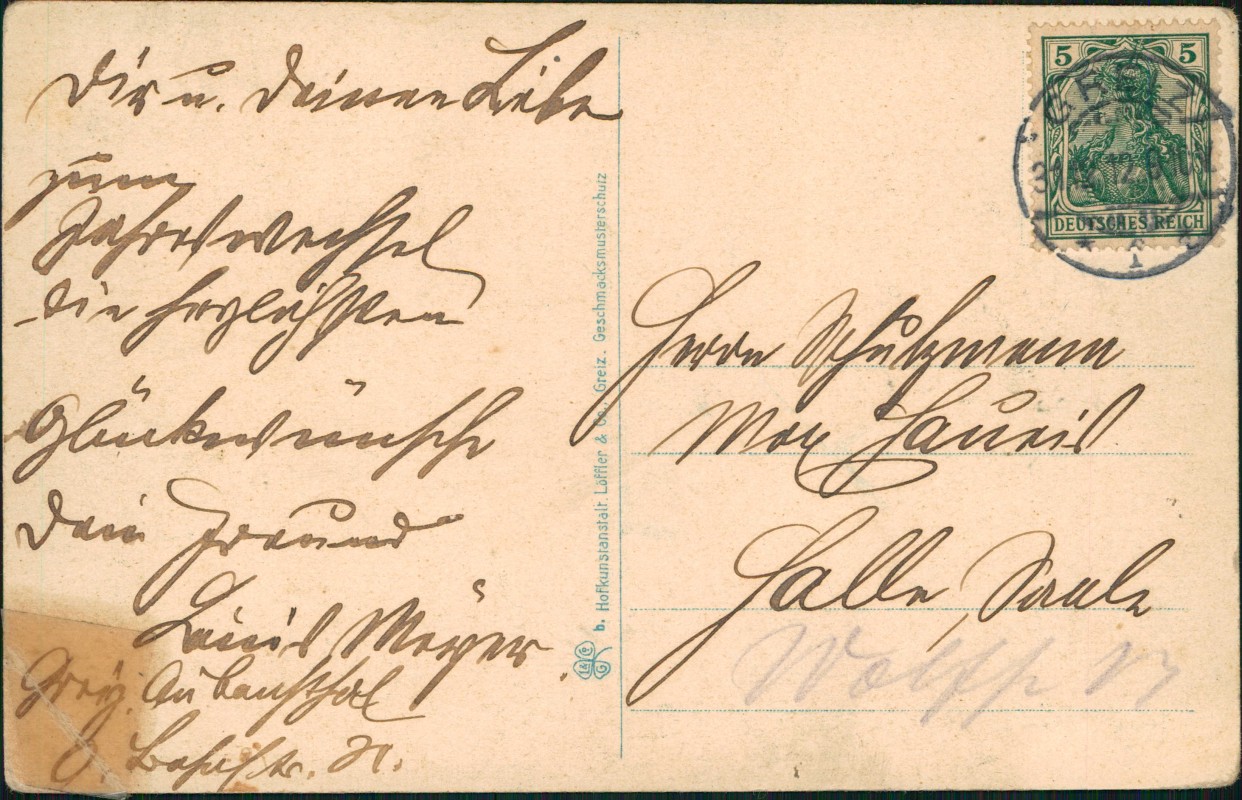 Dir u. Deinen Liebe
zum
Jahreswechsel
die herzlichsten
Glückwünsche
Dein Freund
Louis Meyer
Greiz. Aubachthal
Bahnhstr.
b. Hofkunstanstalt Löffler & Co., Greiz. Geschmacksmusterschutz
L & Co G
5 5
DEUTSCHES REICH
GREIZ
31. 12.
Herrn Schutzmann
Max
Halle, Saale
Wolffp 17